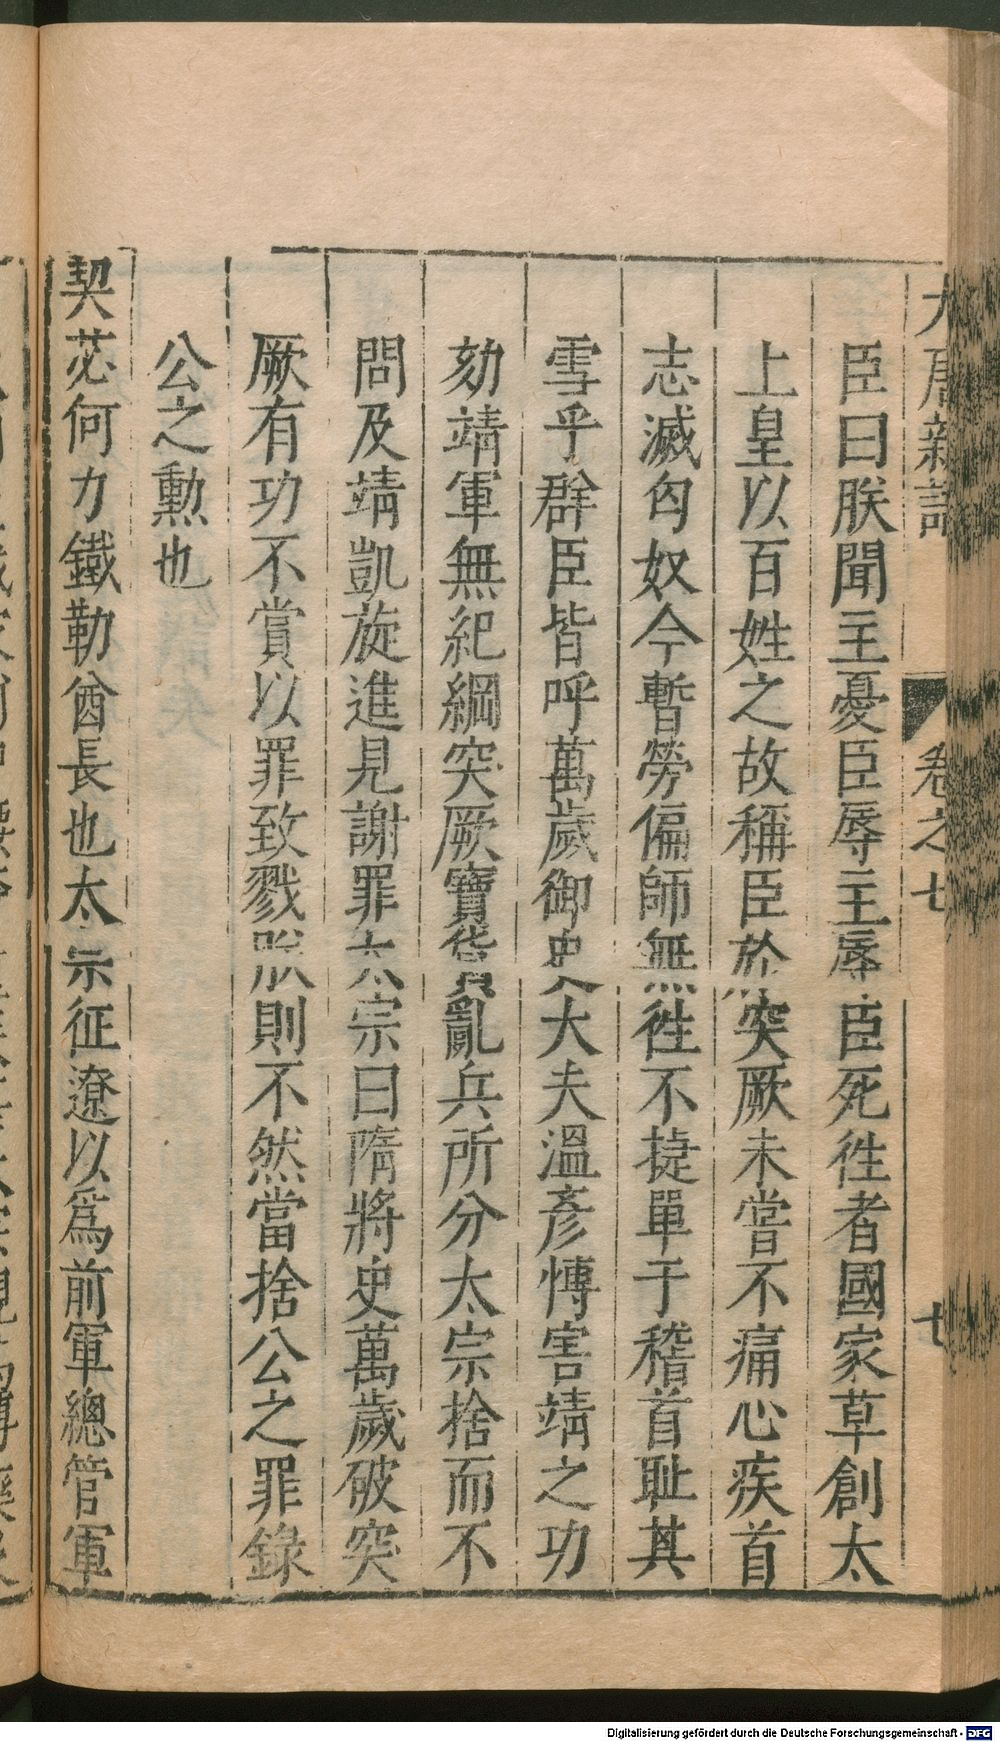 大唐新語 卷之七 七
臣曰朕聞主憂臣辱主辱臣死徃者國家草創太
上皇以百姓之故稱臣於突厥未嘗不痛心疾首
志滅匈奴今暫勞偏師無徃不捷單于稽首耻其
雪乎群臣皆呼萬歲御史大夫溫彥愽害靖之功
劾靖軍無紀綱突厥寶貨亂兵所分太宗捨而不
問及靖凱旋進見謝罪太宗曰隋將史萬歲破突
厥有功不賞以罪致戮朕則不然當捨公之罪錄
公之勳也
契苾何力鐵勒酋長也太宗征遼以爲前軍總管軍
Digitalisierung gefördert durch die Deutsche Forschungsgemeinschaft - DFG